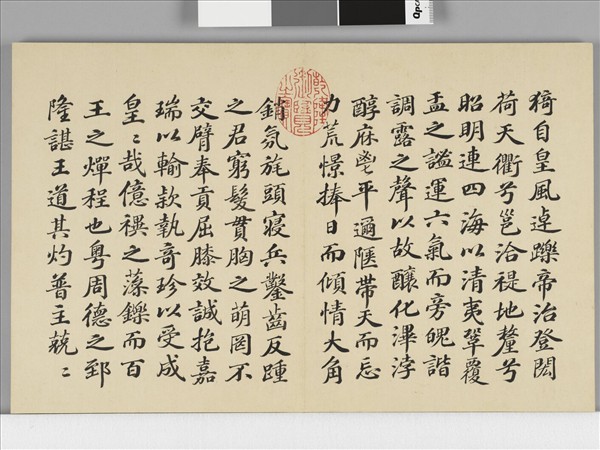 猗自皇風逴躒帝治登閎
荷天衢兮邕洽禔地釐兮
昭明連四海以清夷鞏覆
盂之謐運六氣而旁魄諧
調露之聲以故釀化滭浡
醇庥鬯平邇陿帶天而忘
力荒憬捧日而傾情大角
銷氛旄頭寢兵鑿齒反踵
之君窮髮貫胸之萌罔不
交臂奉貢屈膝效誠抱嘉
瑞以輸款執奇珍以受成
皇〻哉億禩之藻鑠而百
王之燀程也粵周德之郅
隆諶王道其灼普主藐〻
乾隆御覽之寶